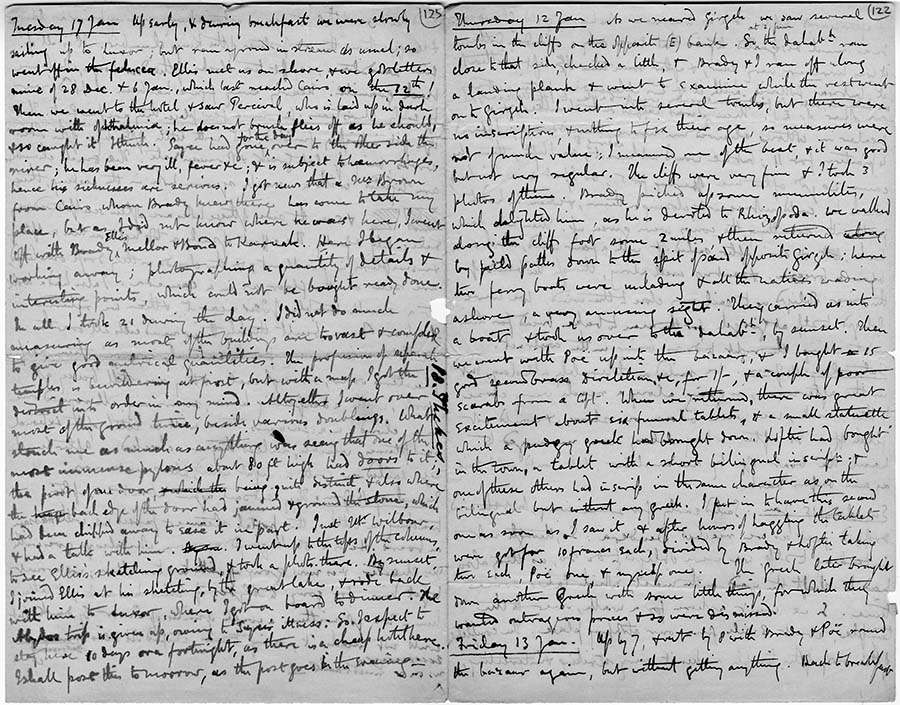 123
Tuesday 17 Jan Up early, & during breakfast we were slowly
sailing up to Luxor; but ran aground in stream as usual; so
went off in the felucca. Ellis met us on shore, & we got letters
mine of 28 Dec. & 6 Jan., which last reached Cairo on the 12th!
Then we went to the hotel & saw Percival, who is laid up in dark
room with ophthalmia; he does not brush flies off as he should,
& so caught it I think. Sayce had gone for the day over to the other side the
river; he has been very ill, fever &c; & is subject to haemorrhages,
hence his sicknesses are serious. I got news that a Mr Byrom
from Cairo whom Brady knew there has come to take my
place, but as I did not know where he was here, I went
off with Brady Ellis Mellor & Bond to Karnak. Here I began
working away; photographing a quantity of details &
interesting points, which could not be bought ready done.
In all I took 21 during the day. I did not do much
measuring as most of the buildings are too vast & complex
to give good metrical quantities. The profusion of separate
temples is bewildering at first, but with a map I got the
district into order in my mind. Altogether I went over
most of the ground twice, beside various doublings. What
struck me as much as anything was seeing that one of the
most immense pylons about 80 ft high had doors to it;
the pivot of one door being quite distinct & also where
the back edge of the door had jammed & ground the stone, which
had been chipped away to ease it in part. I just met Wilbour,
& had a talk with him. I went up to the tops of the columns,
to see Ellis's sketching ground & took a photo. there. By sunset
I joined Ellis at his sketching, by the great lake, & rode back
with him to Luxor, where I got on board to dinner. The
Abydos trip is given up, owing to Sayce's illness: so I expect to
stay here 10 days or a fortnight, as there is a cheap hotel here.
I shall post this tomorrow, as the post goes in the evening.
10. Thebes
122
Thursday 12 Jan As we neared Girgeh we saw several
tombs in the cliffs on the opposite (E) bank. So the dahabh ran
close to that side, checked a little & Brady & I ran off along
a landing plank & went to examine while the rest went
on to Girgeh. I went into several tombs, but there were
no inscriptions, & nothing to fix their age, so measures were
not of much value; I measured one of the best, & it was good
but not very regular. The cliffs were very fine & I took 3
photos of them. Brady picked up some nummulites,
which delighted him, as he is devoted to Rhizopoda. We walked
along the cliffs foot some 2 miles, & then returned
by field paths down to the spit of sand opposite Girgeh; here
two ferry boats were unloading & all the natives wading
ashore, a very amusing sight. They carried us into
a boat, & took us over to the dahabh, by sunset. Then
we went with Poë up into the bazaar, & I bought 15
good second brass Diocletian &c, for 1/-, & a couple of poor
scarabs from a Copt. When we returned, there was great
excitement about six funeral tablets, & a small statuette
which a pudgy greek had brought down. Loftie had bought
in the town, a tablet with a short bilingual inscript. &
one of these others had inscrip. in the same character as on the
bilingual but without any greek. I put in to have this second
one as soon as I saw it & after hours of haggling the tablets
were got for 10 francs each, divided by Brady & Loftie taking
two each, Poë one & myself one. The Greek later brought
down another Greek with some little things, for which they
wanted outrageous prices & so were dismissed.
Friday 13 Jan Up by 7, & out by 8 with Brady & Poë round
the bazaar again, but without getting anything. Back to breakfast